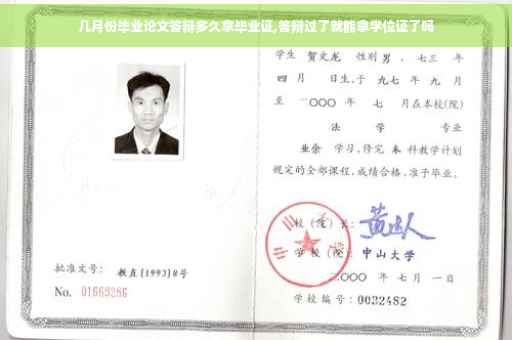 几月份毕业论文答辩多久拿毕业证,答辩过了就能拿学位证了吗
学生 贺文龙 性别 男 、七三 年
四 月 日生,于 九七 年 九 月
至 二〇〇〇 年 七 月在本校(院)
法 学 专业
业余 学习,修完 本 科教学计划
规定的全部课程,成绩合格,准予毕业。
校 (院) 长:
学 校 (院): 中山大学
二〇〇〇 年 七 月 一 日
批准文号: 教直[1993]8号
No. 01669286
学校编号: 0032482